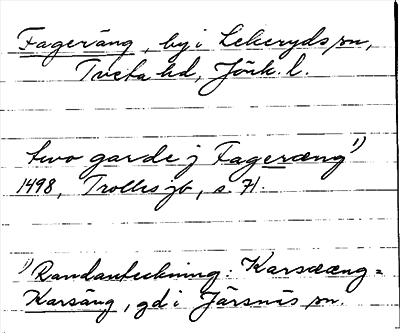 Fageräng, by i Lekeryds sn,
Tveta hd, Jönk. l.
two garde j Fageræng¹⁾
1498, Trolles jb, s. 71.
¹⁾Randanteckning: Karsææng =
Karsäng, gd i Järsnäs sn.